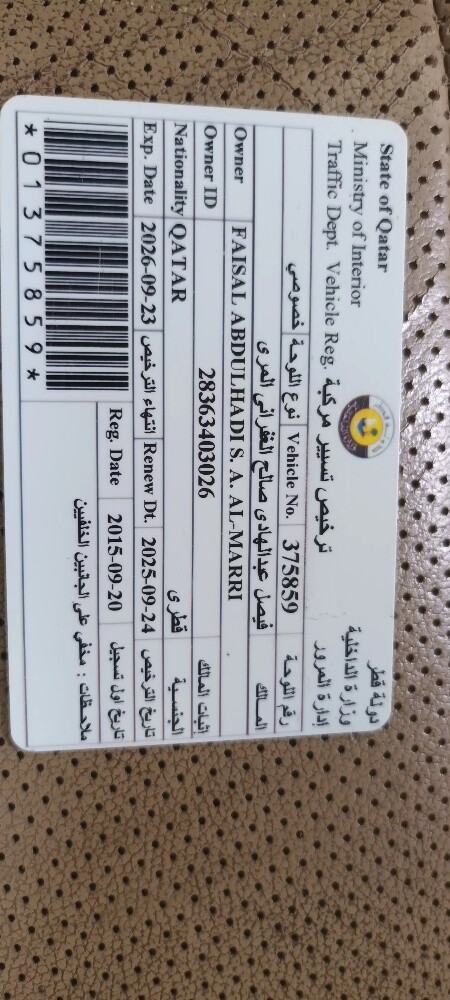 State of Qatar دولة قطر
Ministry of Interior وزارة الداخلية
Traffic Dept. Vehicle Reg. ترخيص تسيير مركبة إدارة المرور
خصوصي نوع اللوحة Vehicle No. 375859 رقم اللوحة
فيصل عبدالهادى صالح الغفرانى المرى المالك
Owner FAISAL ABDULHADI S. A. AL-MARRI
Owner ID 28363403026 إثبات المالك
Nationality QATAR قطرى الجنسية
Exp. Date 2026-09-23 انتهاء الترخيص Renew Dt. 2025-09-24 تاريخ الترخيص
Reg. Date 2015-09-20 تاريخ اول تسجيل
ملاحظات : مخفي على الجانبين الخلفيين
*01375859*